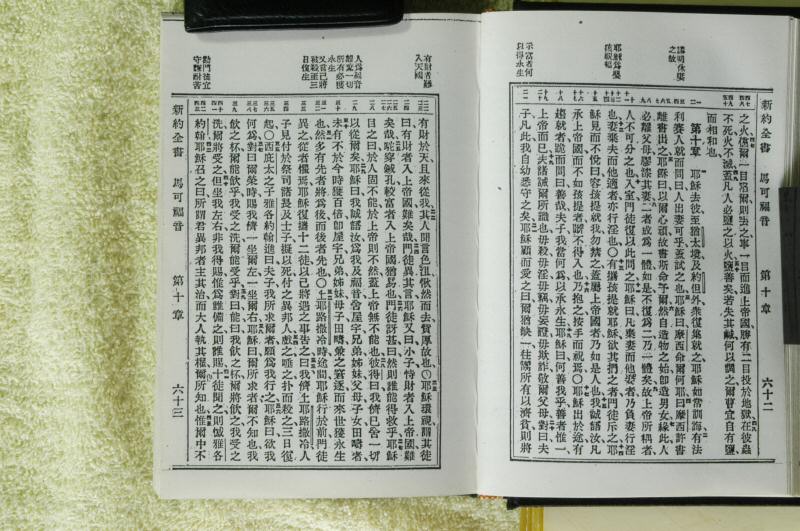 新約全書 馬可福音 第十章 六十二
諭明休妻之故
耶穌爲嬰孩祝福
示富者何以得永生
之火爾一目罪爾則去之寧一目而進上帝國勝有二目投於地獄在彼蟲
不死火不滅蓋凡人必鹽之以火鹽善矣若失其鹹何以調之爾曹宜自有鹽
而相和也
第十章 耶穌去彼至猶太境及約但外衆復集就之耶穌如常訓誨有法
利賽人就而問曰人出妻可乎蓋試之也耶穌曰摩西命爾何耶曰摩西許書
離書出之耶穌曰以爾心頑故書斯命予爾然自造物之始卽造男女緣此人
必離父母膠漆其妻二者成爲一體如是不復爲二乃一體矣故上帝所耦者
人不可分之也入室門徒復以此問之耶穌曰凡棄妻而他娶者乃負妻行淫
也妻棄夫而他適者亦行淫也○有攜孩提就耶穌欲其捫之者門徒斥之耶
穌見而不悅曰容孩提就我勿禁之蓋屬上帝國者乃如是人也我誠語汝凡
承上帝國而不如孩提者不得入也乃抱之按手而祝焉○耶穌出於途有
趨就者跪而問曰善哉夫子我當何爲以承永生耶穌曰何善我乎善者惟一
上帝而已夫諸誡爾所識也毋殺毋淫毋竊毋妄證毋欺詐敬爾父母對曰夫
子凡此我自幼悉守之矣耶穌顧而愛之曰爾猶缺一往鬻所有以濟貧則將
有財者難入天國
人爲福音捨一切所有必獲永生
又言己將被殺至三日復生
有財於天且來從我其人聞言色沮愀然而去貲厚故也○耶穌環視謂其徒
曰有財者入上帝國難矣哉門徒異其言耶穌又曰小子恃財者入上帝國難
矣哉駝穿鍼孔較富者入上帝國猶易也門徒訝甚曰然則誰能得救乎耶穌
目之曰於人固不能於上帝則不然蓋上帝無不能也彼得曰我儕已舍一切
以從爾矣耶穌曰我誠語汝爲我及福音舍屋宇兄弟姊妹父母妻子女田疇者
未有不於今時獲百倍卽屋宇兄弟姊妹母子田疇兼之窘逐而來世獲永生
也然多有先者將爲後而後者先也○上耶路撒冷時途間耶穌行於前門徒
異之從者懼焉耶穌復攜十二徒以己將遇之事告之曰我儕上耶路撒冷人
子見付於祭司諸長及士子擬以死付之異邦人戲之唾之扑而殺之三日復
起○西庇太之子雅各約翰進曰夫子我所求者願爲我行之耶穌曰欲我
何爲對曰榮時賜我儕一坐爾左一坐爾右耶穌曰爾所求者爾不知也我
飲之杯爾能飲乎我受之洗爾能受乎對曰能曰我飲之杯爾將飲之我受之
洗爾將受之但坐我左右非我得賜惟爲誰備之則誰賜十徒聞之則憾雅各
約翰耶穌召之曰所謂君異邦者主其治而大人執其權爾所知也惟爾中不
新約全書 馬可福音 第十章 六十三